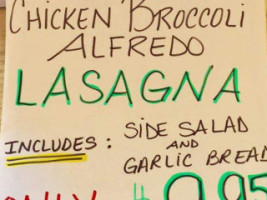 CHICKEN BROCCOLI
ALFREDO
LASAGNA
INCLUDES: SIDE SALAD
AND
GARLIC BREAD
ONLY $9.95